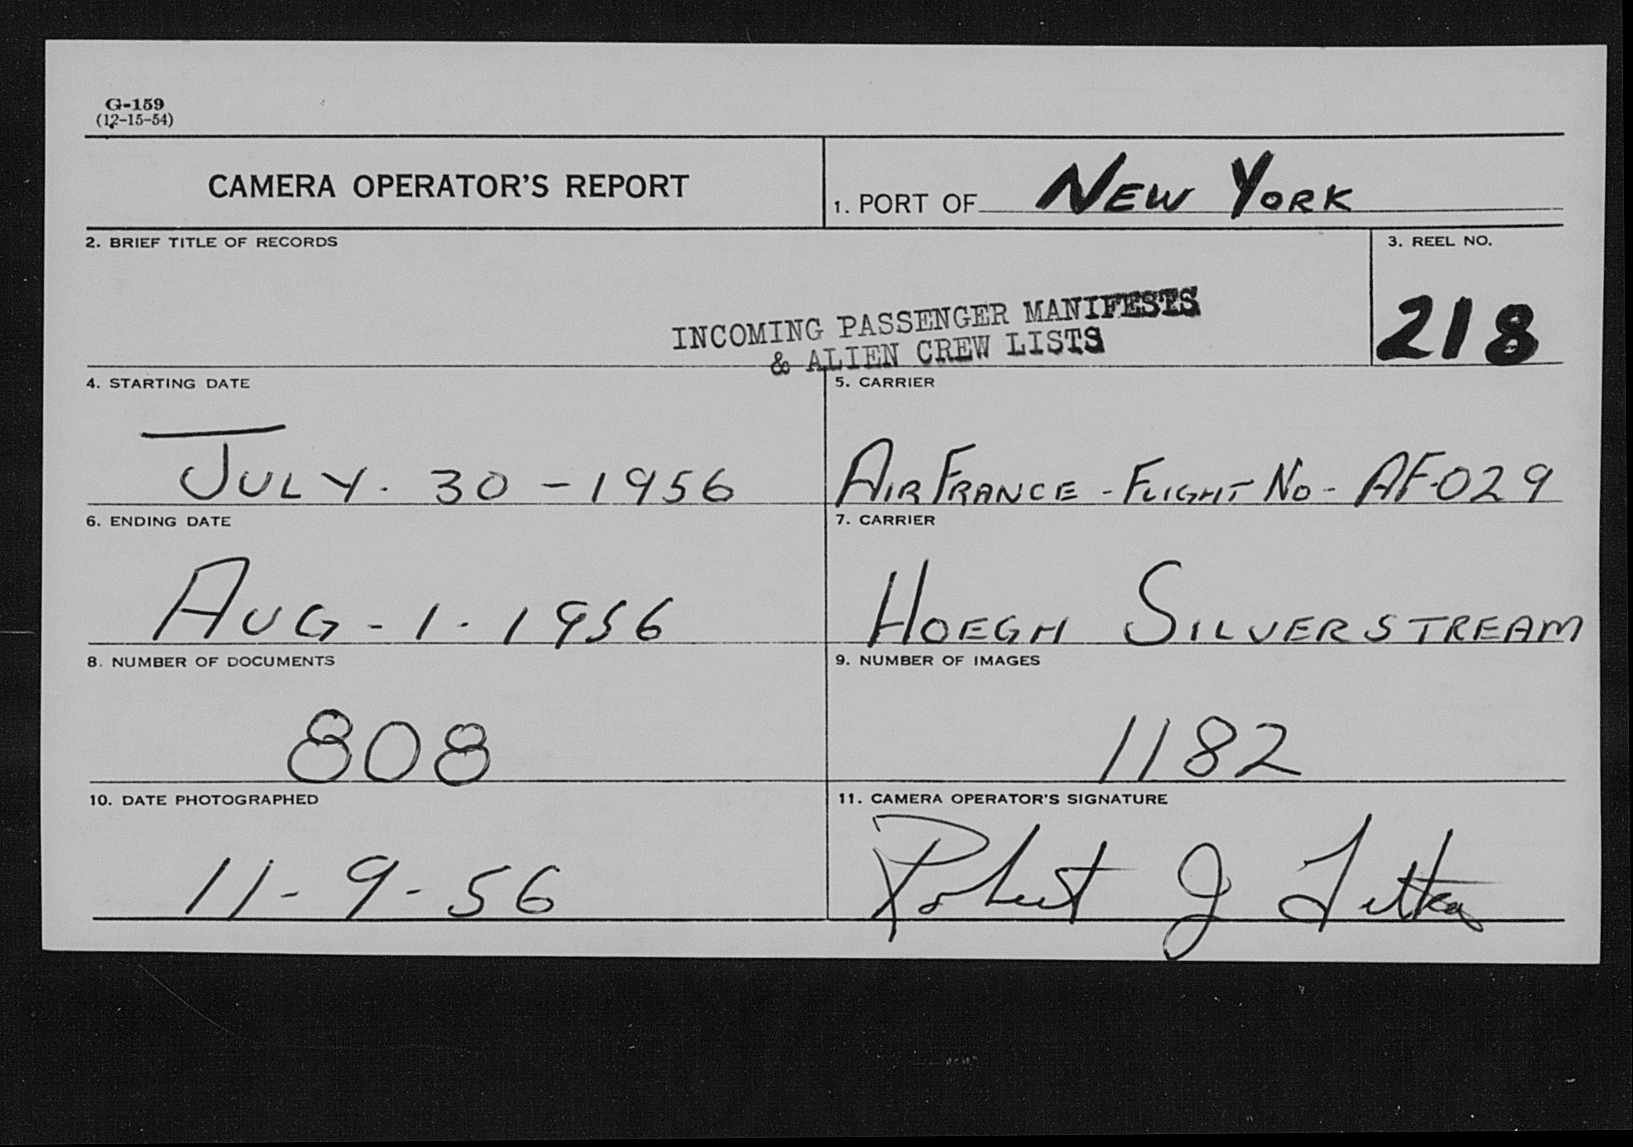 G-159
(12-15-54)
CAMERA OPERATOR'S REPORT
1. PORT OF NEW YORK
2. BRIEF TITLE OF RECORDS
3. REEL NO.
INCOMING PASSENGER MANIFESTS
& ALIEN CREW LISTS
218
4. STARTING DATE
5. CARRIER
JULY. 30 - 1956
AIR FRANCE - FLIGHT NO - AF-029
6. ENDING DATE
7. CARRIER
AUG - 1 - 1956
HOEGH SILVERSTREAM
8. NUMBER OF DOCUMENTS
9. NUMBER OF IMAGES
808
1182
10. DATE PHOTOGRAPHED
11. CAMERA OPERATOR'S SIGNATURE
11-9-56
Robert J